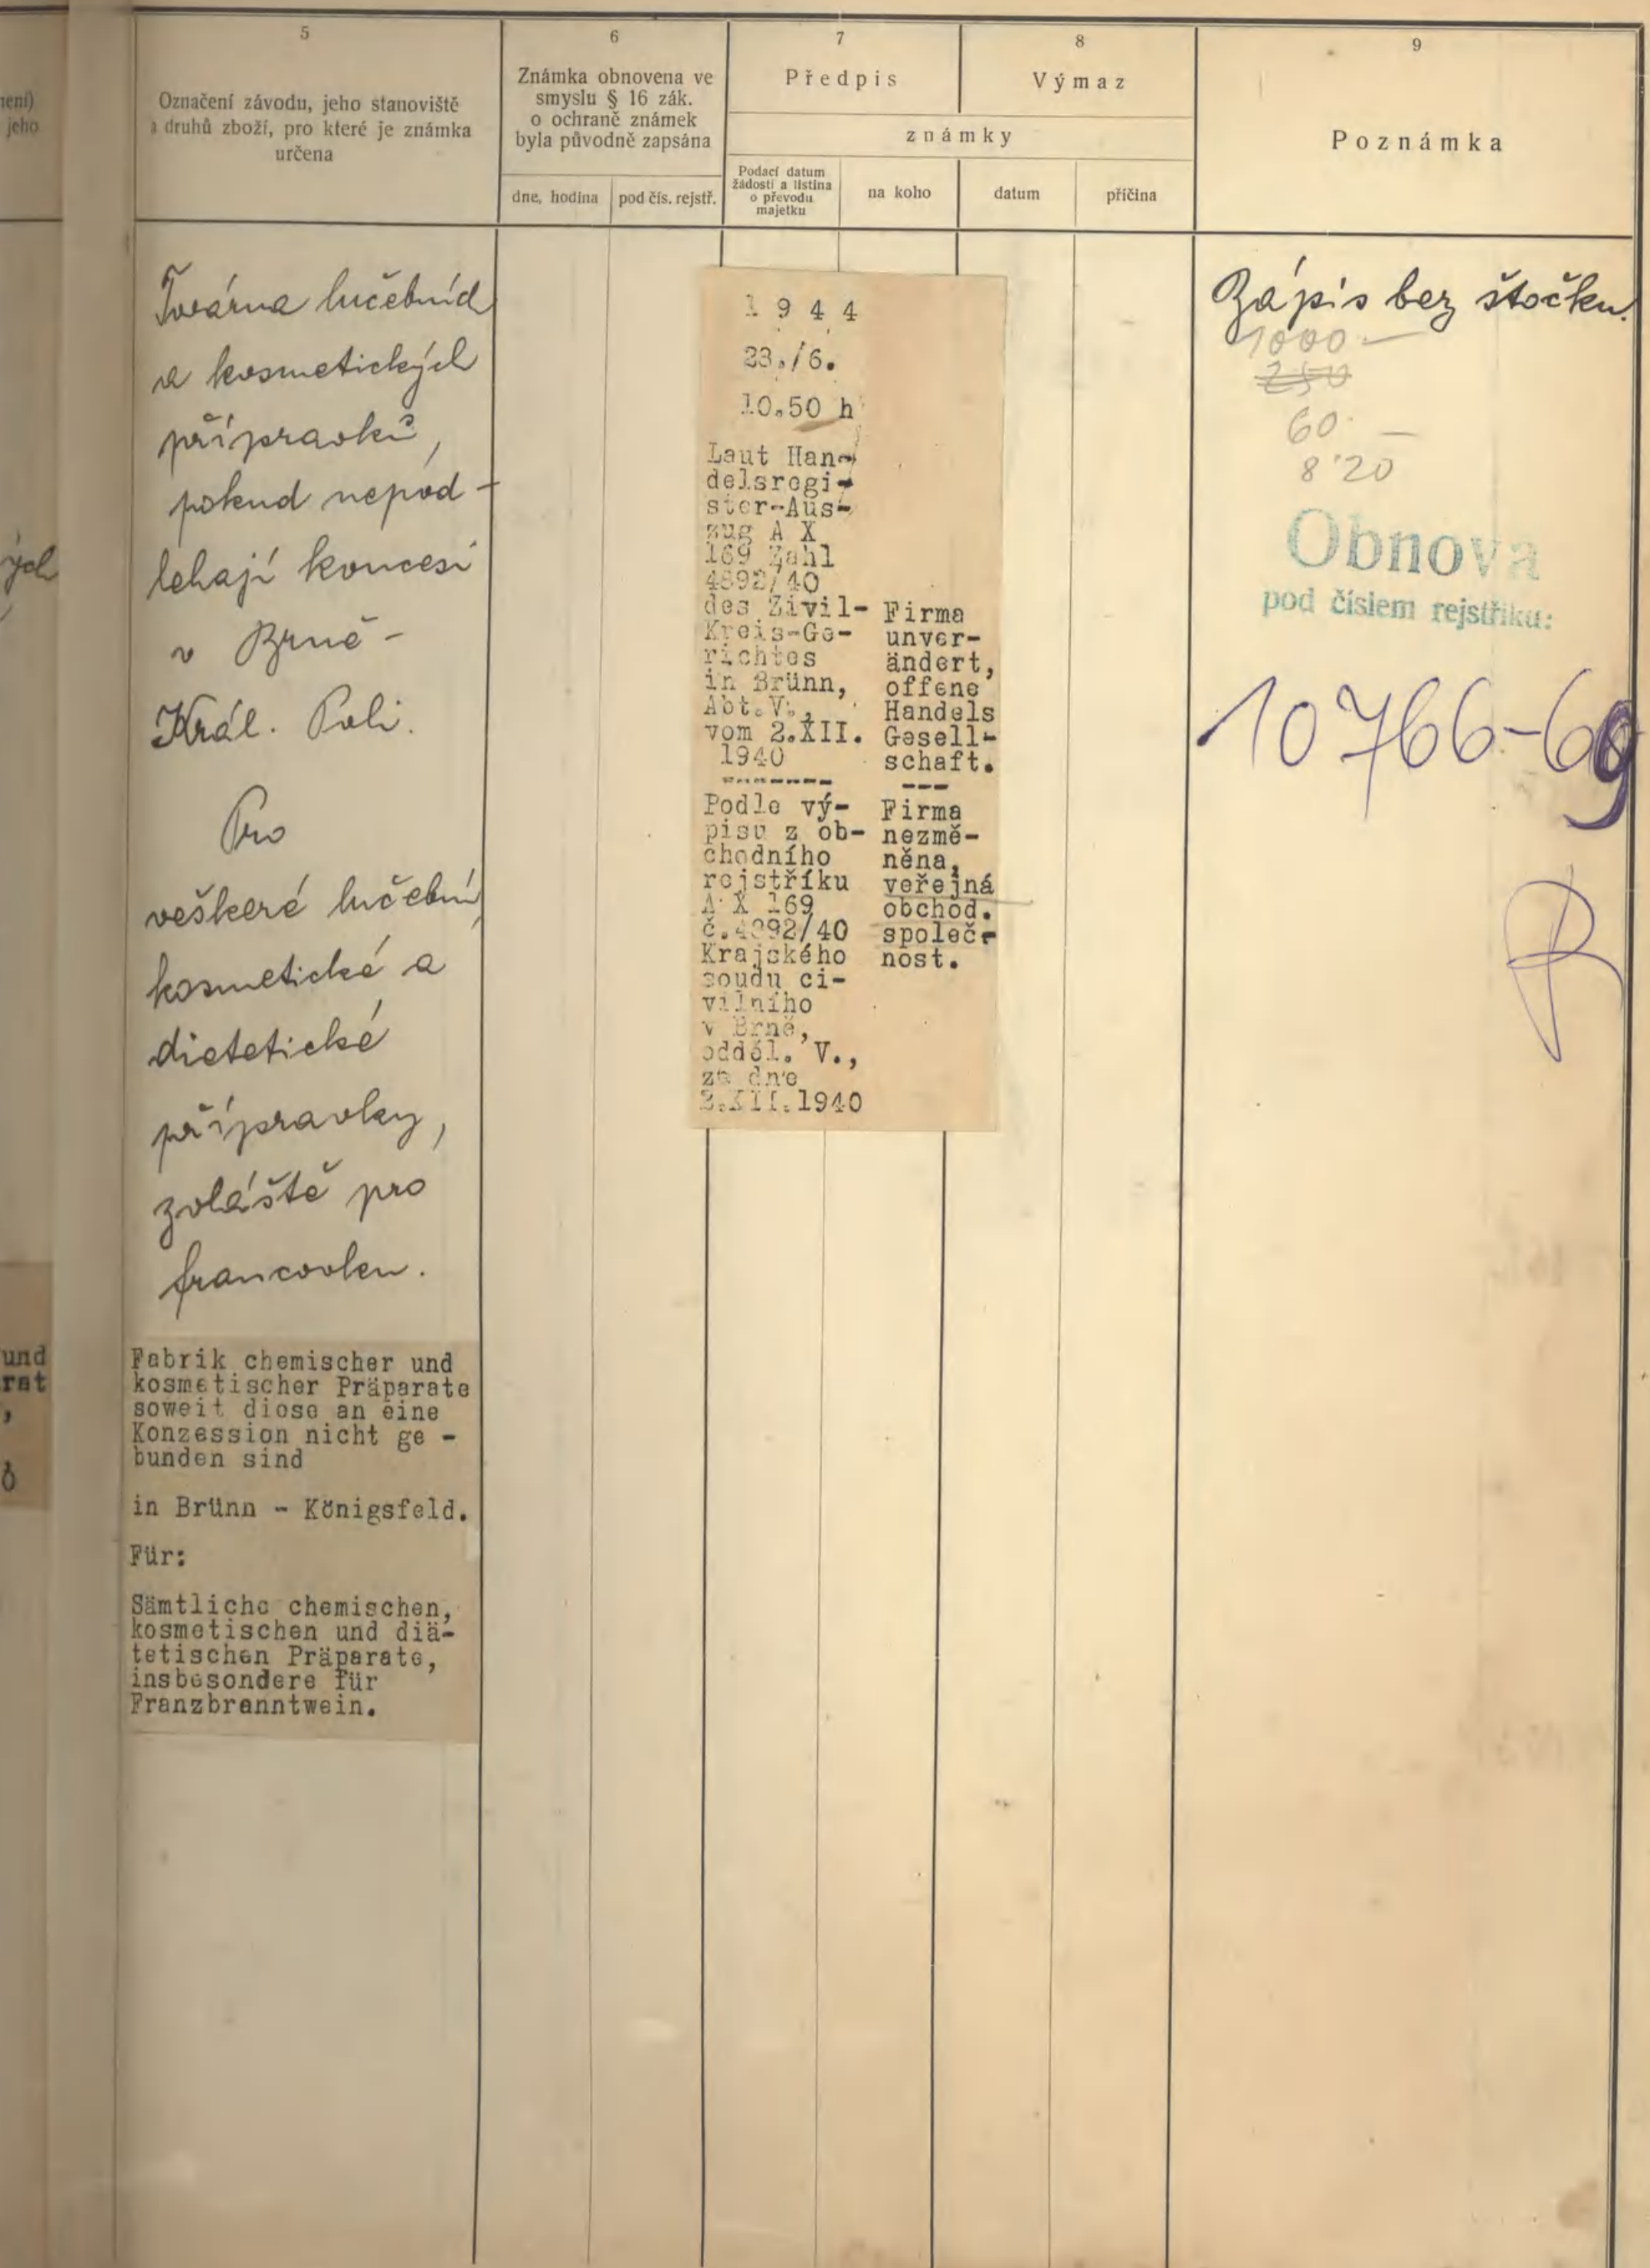 ení)
jeho
ých
und
rat
,
5
Označení závodu, jeho stanoviště
a druhů zboží, pro které je známka
určena
6
Známka obnovena ve
smyslu § 16 zák.
o ochraně známek
byla původně zapsána
dne, hodina
pod čís. rejstř.
7
Předpis
8
Výmaz
známky
Podací datum
žádosti a listina
o převodu
majetku
na koho
datum
příčina
9
Poznámka
Továrna lučebních
a kosmetických
přípravků,
pokud nepod-
léhají koncesi
v Brně -
Král. Poli.
Pro
veškeré lučební,
kosmetické a
dietetické
přípravky,
zvláště pro
francovku.
Fabrik chemischer und
kosmetischer Präparate
soweit diese an eine
Konzession nicht ge -
bunden sind
in Brünn - Königsfeld.
Für:
Sämtliche chemischen,
kosmetischen und diä-
tetischen Präparate,
insbesondere für
Franzbranntwein.
1944
23./6.
10.50 h
Laut Han-
delsregi-
ster-Aus-
zug A X
169 Zahl
4892/40
des Zivil-
Kreis-Ge-
richtes
in Brünn,
Abt.V.,
vom 2.XII.
1940
Firma
unver-
ändert,
offene
Handels
Gesell-
schaft.
Podle vý-
pisu z ob-
chodního
rejstříku
A X 169
č.4892/40
Krajského
soudu ci-
vilního
v Brně,
odděl. V.,
ze dne
2.XII.1940
Firma
nezmě-
něna,
veřejná
obchod.
společ-
nost.
Zápis bez štočku.
1000 -
250
60 -
8'20
Obnova
pod číslem rejstříku:
10766-69